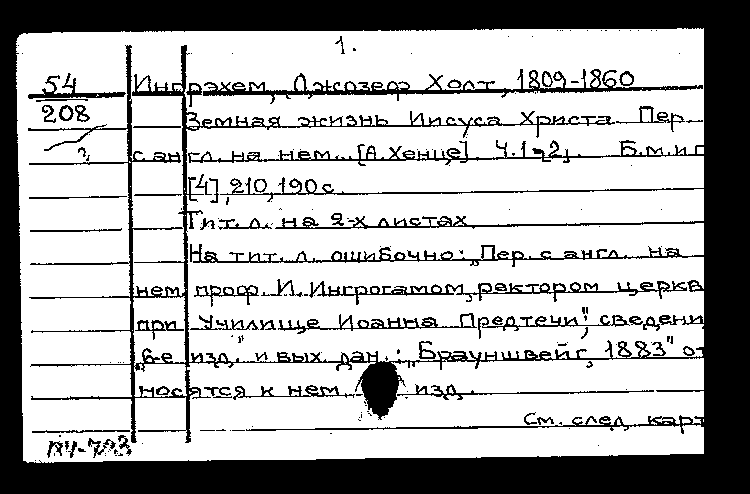 1.
54 Ингрэхем, Джозеф Холт, 1809-1860
208 Земная жизнь Иисуса Христа. Пер.
с англ. на нем. [А. Хенце]. Ч.1-2. Б.м. и г
[4], 210, 190 с.
Тит. л. на 2-х листах
На тит. л. ошибочно: „Пер. с англ. на
нем. проф. И. Ингрогамом, ректором церкв
при Училище Иоанна Предтечи", сведени
„6-е изд. и вых. дан.: „Брауншвейг, 1883" от
носятся к нем. изд.
См. след. карт